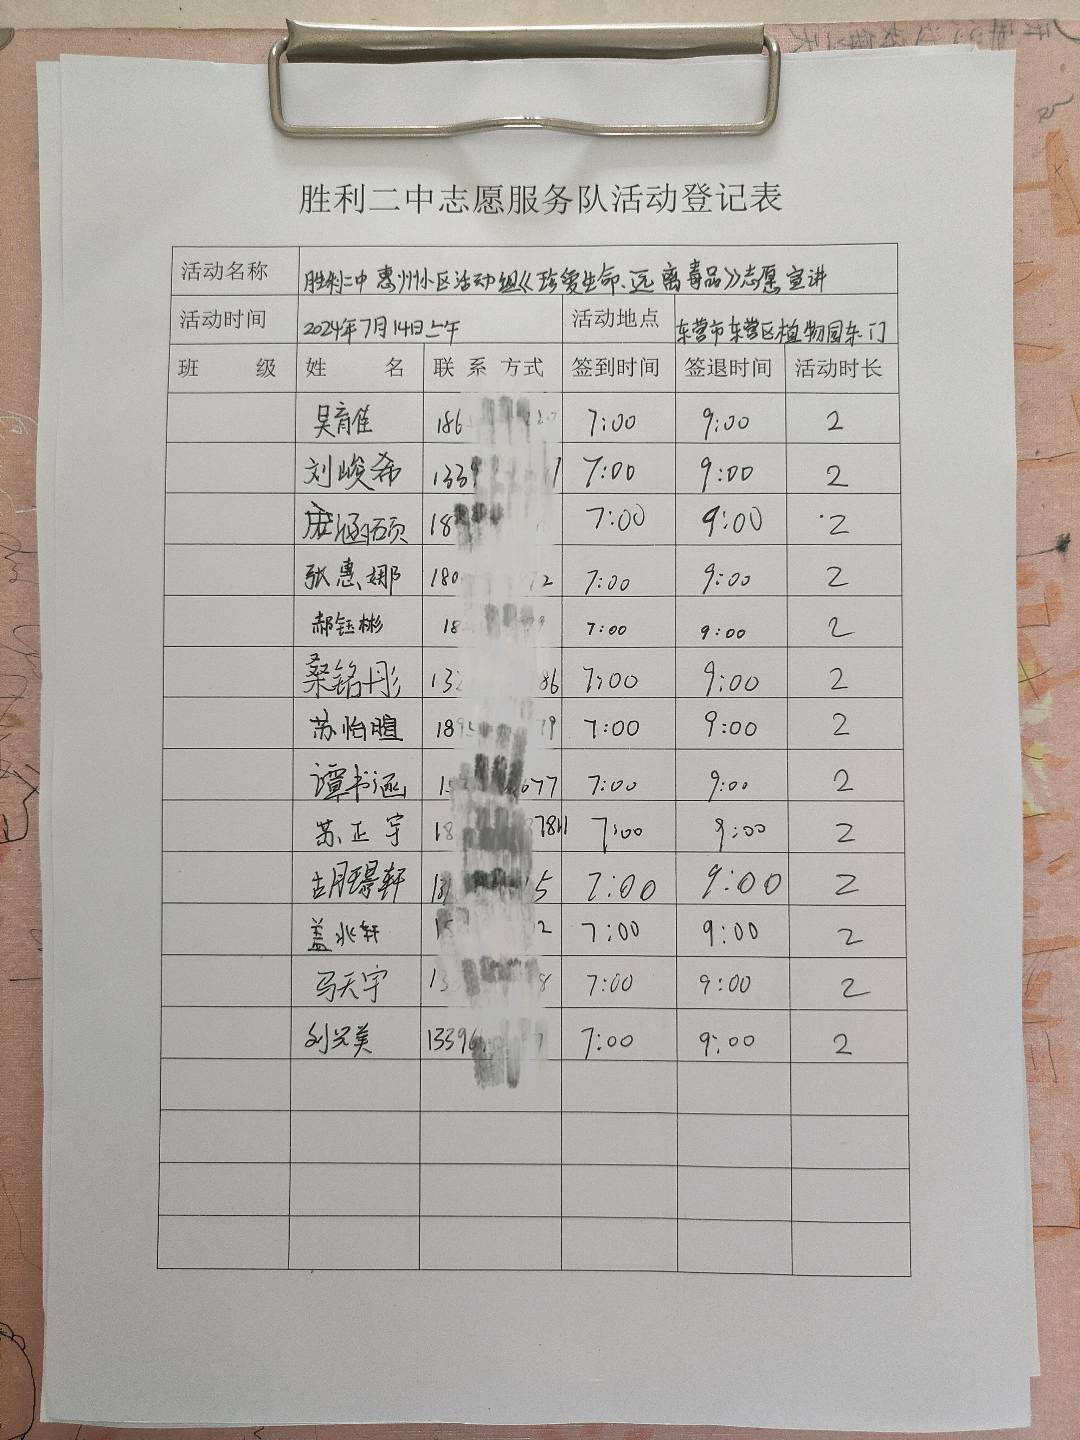 胜利二中志愿服务队活动登记表
活动名称 胜利二中惠州小区活动组《珍爱生命、远离毒品》志愿宣讲
活动时间 2024年7月14日上午 活动地点 东营市东营区植物园东门
班 级 姓 名 联 系 方式 签到时间 签退时间 活动时长
吴育佳 186 7:00 9:00 2
刘峻希 1339 7:00 9:00 2
庞涵硕 18 7:00 9:00 2
张惠娜 180 2 7:00 9:00 2
郝钰彬 18 7:00 9:00 2
桑铭彤 132 86 7:00 9:00 2
苏怡暄 189 79 7:00 9:00 2
谭书涵 677 7:00 9:00 2
苏正宇 18 7:00 9:00 2
胡璟轩 5 7:00 9:00 2
盖兆轩 15 2 7:00 9:00 2
马天宇 13 8 7:00 9:00 2
刘兴美 13396 7 7:00 9:00 2